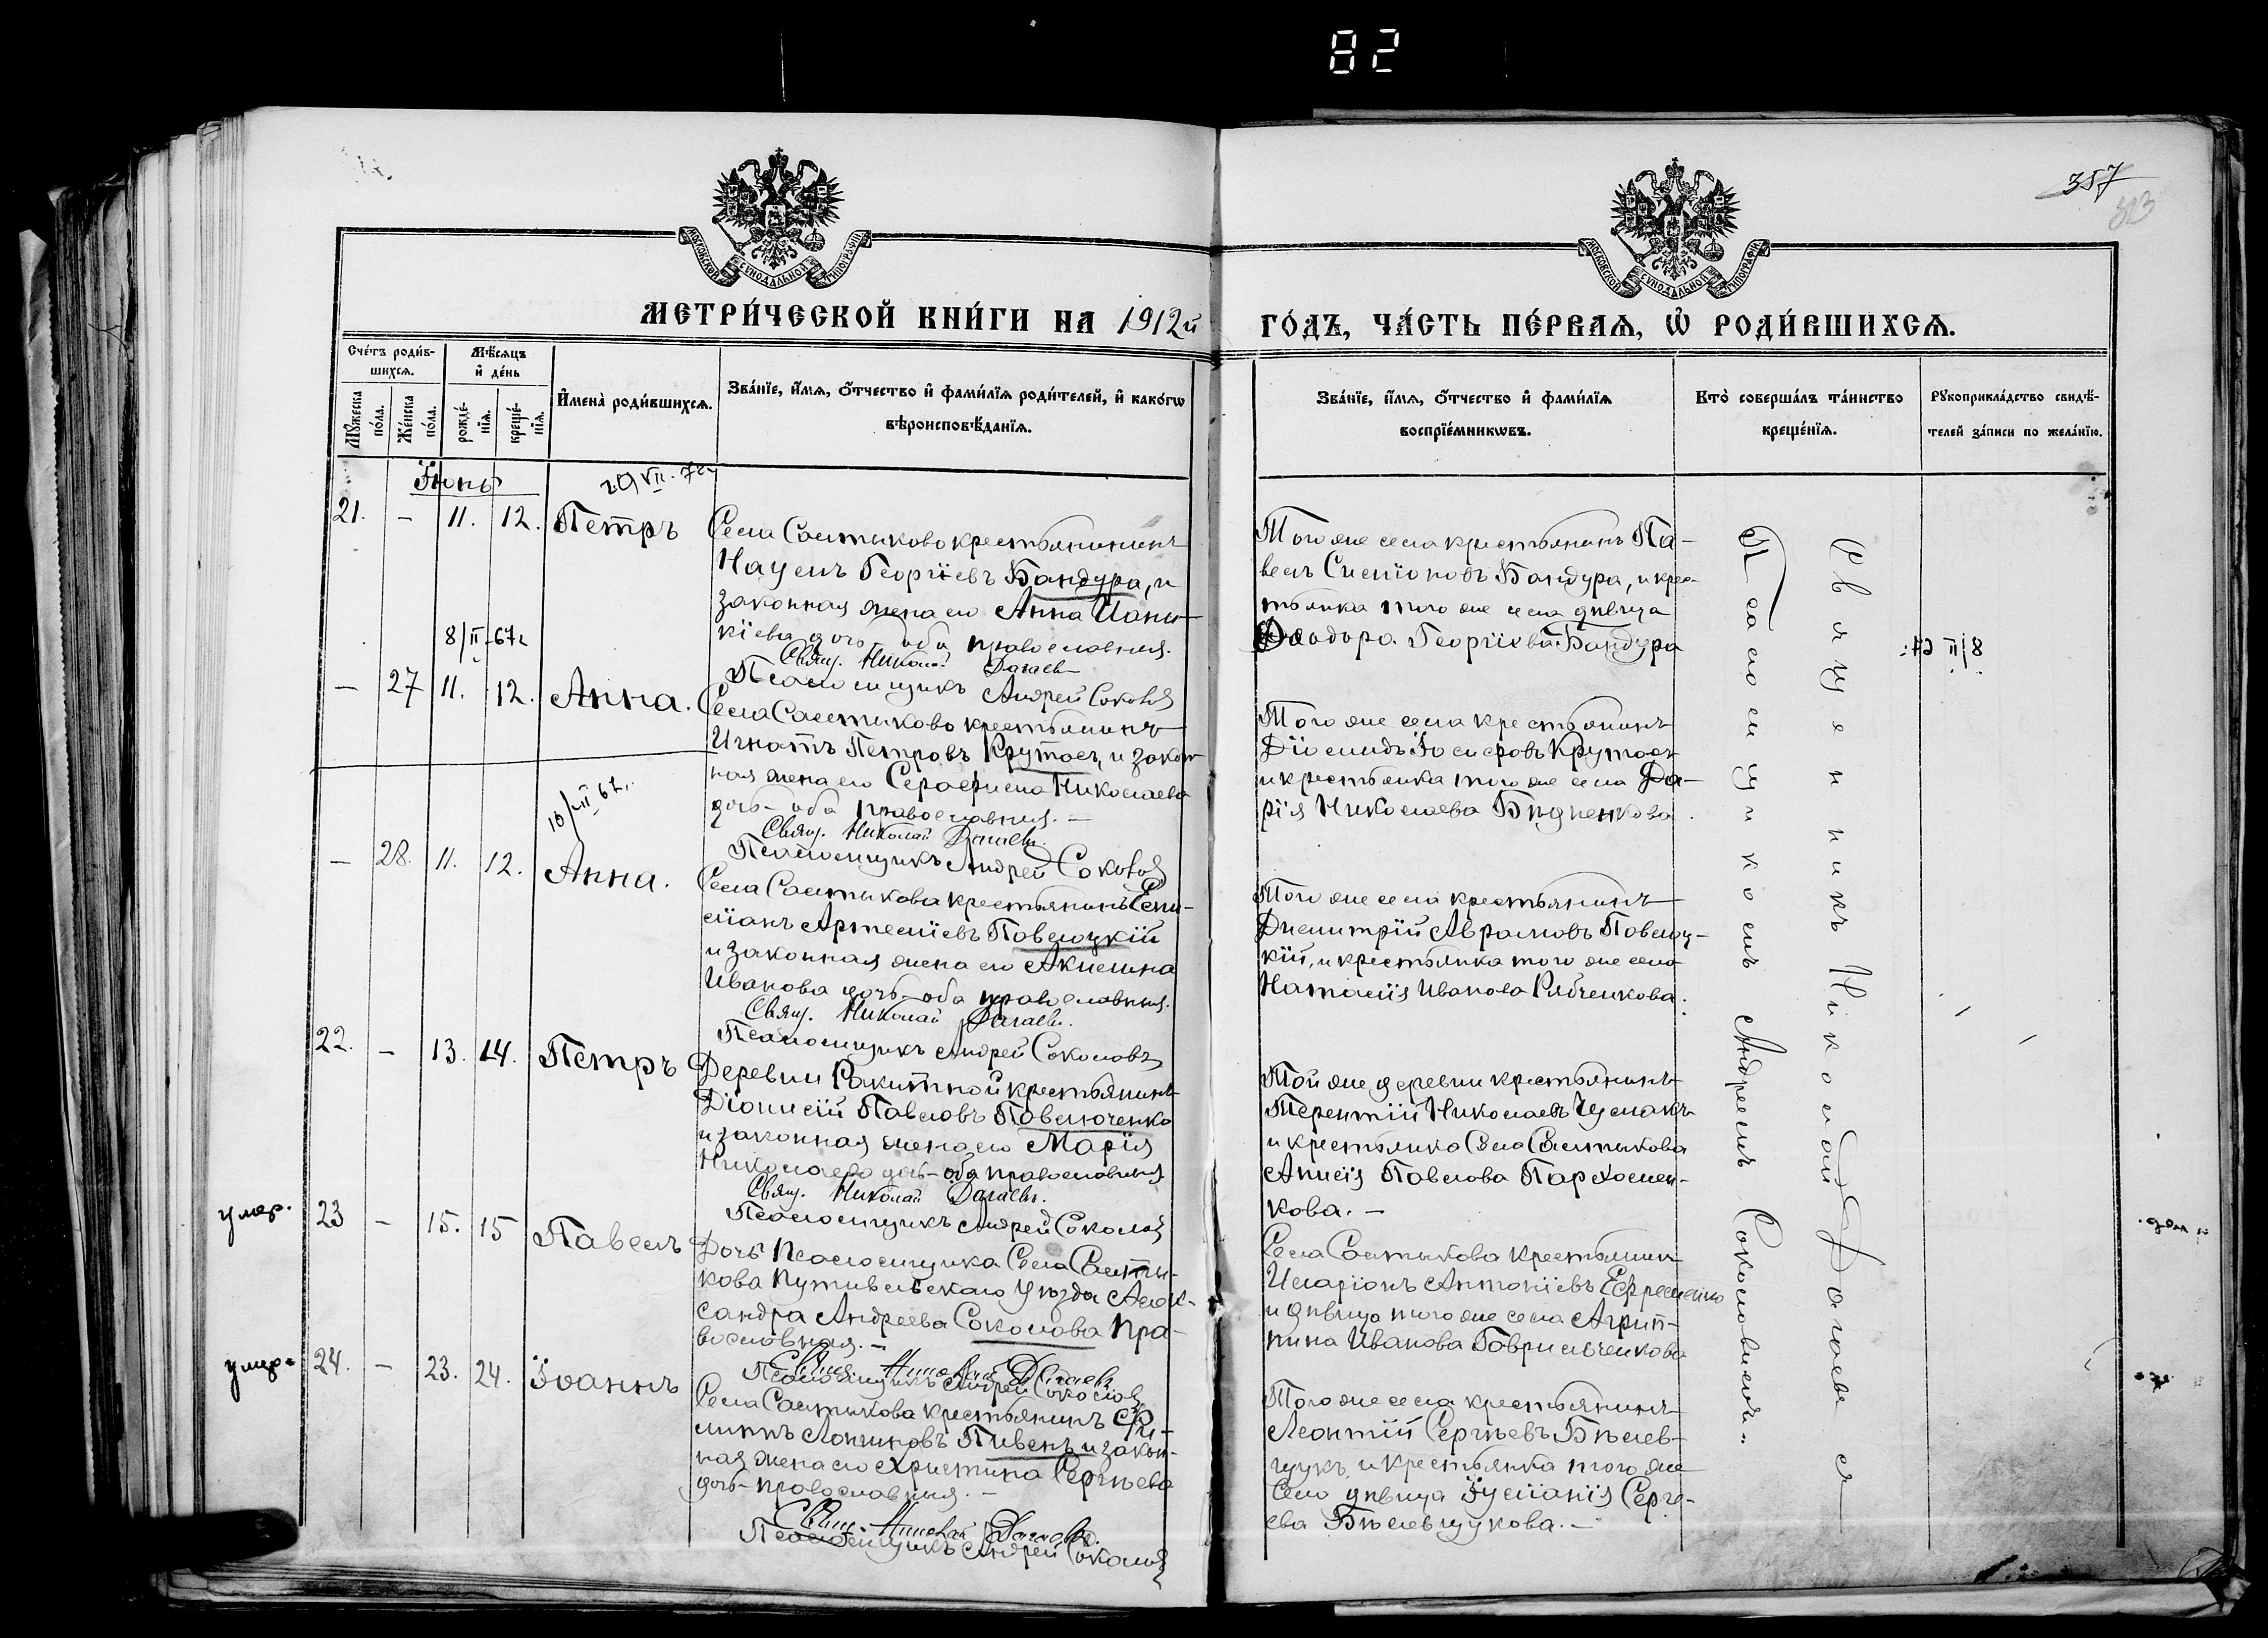 82
357
МОСКОВСКОЙ СУНОДАЛЬНОЙ ТИПОГРАФІИ
МОСКОВСКОЙ СУНОДАЛЬНОЙ ТИПОГРАФІИ
МЕТРИ́ЧЕСКОЙ КНИ́ГИ НА 1912й
ГО́ДЪ, ЧА́СТЬ ПЕ́РВАѦ, Ѡ҆ РОДИ́ВШИХСѦ.
Сче́тъ роди́в-
шихсѧ.
Мѣ́сѧцъ
и҆ де́нь
Мꙋ́жеска
по́ла.
Же́нска
по́ла.
рожде́-
нїѧ.
креще́-
нїѧ.
И҆мена̀ роди́вшихсѧ.
Зва́нїе, и҆́мѧ, ѻ҆́тчество и҆ фами́лїѧ роди́телей, и҆ како́гѡ
вѣроисповѣ́данїѧ.
Зва́нїе, и҆́мѧ, ѻ҆́тчество и҆ фами́лїѧ
воспрїе́мникѡвъ.
Кто̀ соверша́лъ та́инство
креще́нїѧ.
Рꙋкоприкла́дство свидѣ́-
телей за́писи по жела́нїю.
Іюнь
21. - 11. 12. Петръ
Села Салтыково крестьянинъ
Наумъ Георгіевъ Бандура, и
законная жена его Анна Іоаки-
кіева дочь оба православныя.
Свящ. Николай Дагаевъ
Псаломщикъ Андрей Соколовъ
Того же села крестьянинъ Па-
велъ Симеоновъ Бандура, и крес-
тьянка того же села дѣвица
Ѳеодора Георгіева Бандура
8/II-67г
8/II 67.
- 27 11. 12. Анна.
Села Салтыково крестьянинъ
Игнатъ Петровъ Крутось, и закон-
ная жена его Серафима Николаева
дочь - оба православныя. -
Свящ. Николай Дагаевъ.
Псаломщикъ Андрей Соколовъ
Того же села крестьянинъ
Діомидъ Іосифовъ Крутась
и крестьянка того же села Да-
рія Николаева Бидненкова.
- 28. 11. 12. Анна.
Села Салтыкова крестьянинъ Еми-
ліанъ Артеміевъ Павлоцкій
и законная жена его Акилина
Иванова дочь - оба православныя.
Свящ. Николай Дагаевъ.
Псаломщикъ Андрей Соколовъ
Того же села крестьянинъ
Димитрій Аврамовъ Павлоц-
кій, и крестьянка того же села
Наталія Иванова Рябченкова.
22. - 13. 14. Петръ
Деревни Ракитной крестьянинъ
Діонисій Павловъ Павлюченко
и законная жена его Марія
Николаева дочь - оба православныя
Свящ. Николай Дагаевъ.
Псаломщикъ Андрей Соколовъ
Той же деревни крестьянинъ
Терентій Николаевъ Чумакъ
и крестьянка Села Салтыкова
Анисія Павлова Пархомен-
кова. -
умер. 23 - 15. 15 Павелъ
Дочь Псаломщика Села Салты-
кова Путивльскаго Уѣзда Алек-
сандра Андреева Соколова пра-
вославная. -
Свящ. Николай Дагаевъ
Псаломщикъ Андрей Соколовъ
Села Салтыкова крестьянинъ
Иларіонъ Антоніевъ Ефременко
и дѣвица того же села Агрип-
пина Иванова Гаврильченкова
умер. 24. - 23. 24. Іоаннъ
Села Салтыкова крестьянинъ Фи-
липпъ Логиновъ Пивень и закон-
ная жена его Христина Сергѣева
дочь - православныя. -
Свящ. Николай Дагаевъ.
Псаломщикъ Андрей Соколовъ
Того же села крестьянинъ
Леонтій Сергѣевъ Бѣлев-
цукъ, и крестьянка того же
Села дѣвица Іуліанія Серге-
ева Бѣлевцукова. -
Священникъ Николай Дагаевъ съ
Псаломщикомъ Андреемъ Соколовымъ.